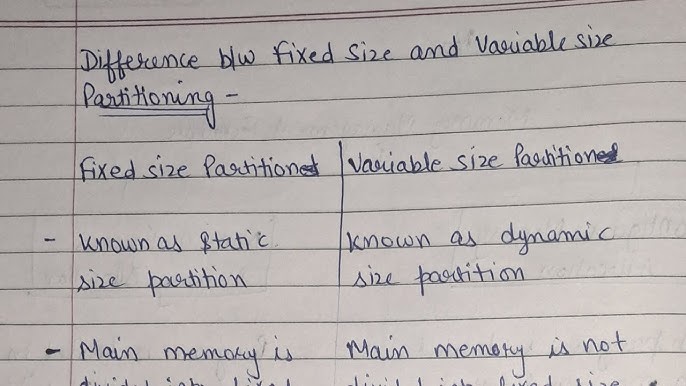 Difference b/w Fixed Size and Variable size
Partitioning -
Fixed size Partitioned | Variable size Partitioned
- Known as static | Known as dynamic
size partition | size partition
- Main memory is | Main memory is not